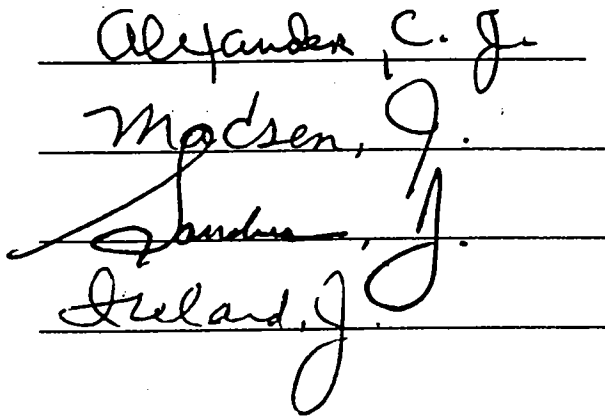 Alexander, C. J.
Madsen, J.
Sanders, J.
Ireland, J.